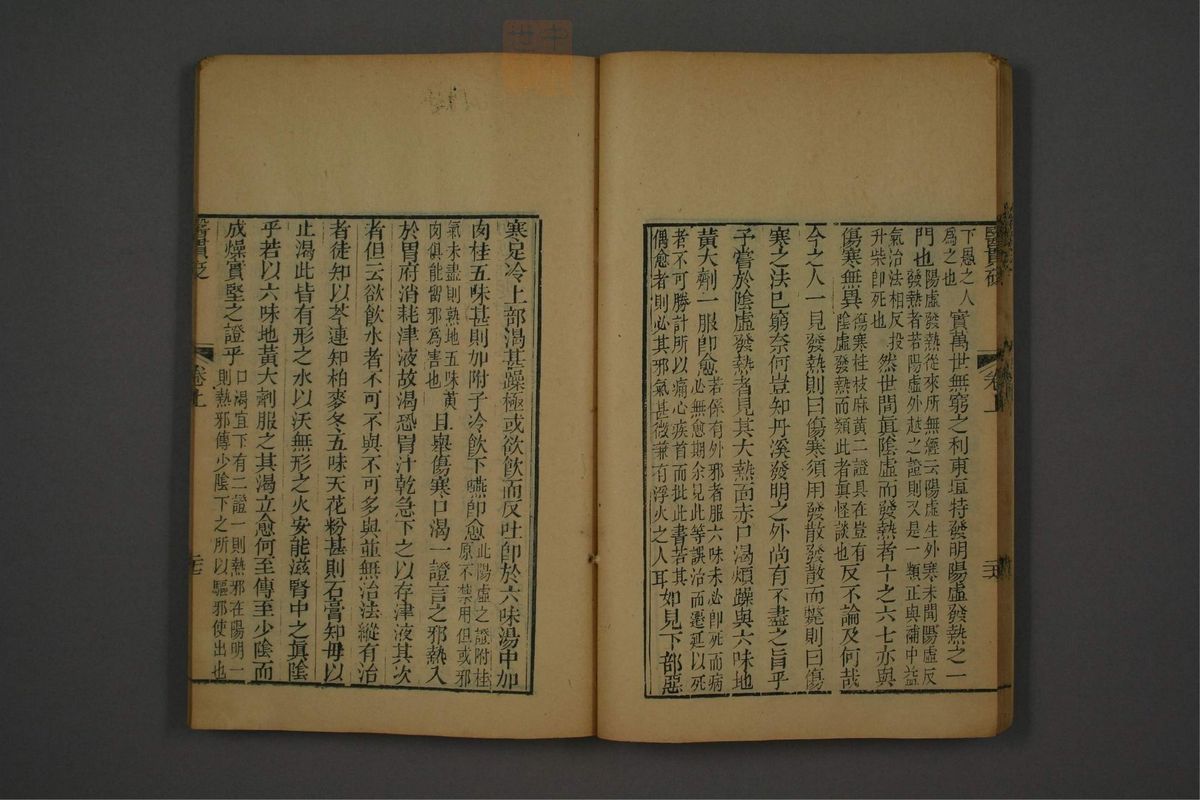 醫貫砭
卷上
下愚之人
爲之也
實萬世無窮之利東垣特發明陽虛發熱之一
門也
陽虛發熱從來所無經云陽虛生外寒未聞陽虛反
發熱者若陽虛外越之證則又是一類正與補中益
氣治法相反投
升柴卽死也
然世間眞陰虛而發熱者十之六七亦與
傷寒無異
傷寒桂枝麻黃二證具在豈有
陰虛發熱而類此者眞怪談也
反不論及何哉
今之人一見發熱則曰傷寒須用發散發散而斃則曰傷
寒之法已窮奈何豈知丹溪發明之外尚有不盡之旨乎
予嘗於陰虛發熱者見其大熱面赤口渴煩躁與六味地
黃大劑一服卽愈
若係有外邪者服六味未必卽死而病
必無愈期余見此等誤治而遷延以死
者不可勝計所以痛心疾首而批此書若其
偶愈者則必其邪氣甚微兼有浮火之人耳
如見下部惡
寒足冷上部渴甚躁極或欲飮而反吐卽於六味湯中加
肉桂五味甚則加附子冷飮下嚥卽愈
此陽虛之證附桂
原不禁用但或邪
氣未盡則熱地五味黃
肉俱能留邪爲害也
且舉傷寒口渴一證言之邪熱入
於胃府消耗津液故渴恐胃汁乾急下之以存津液其次
者但云欲飮水者不可不與不可多與並無治法縱有治
者徒知以芩連知柏麥冬五味天花粉甚則石膏知母以
止渴此皆有形之水以沃無形之火安能滋腎中之眞陰
乎若以六味地黃大劑服之其渴立愈何至傳至少陰而
成燥實堅之證乎
口渴宜下有二證一則熱邪在陽明一
則熱邪傳少陰下之所以驅邪使出也
卷上